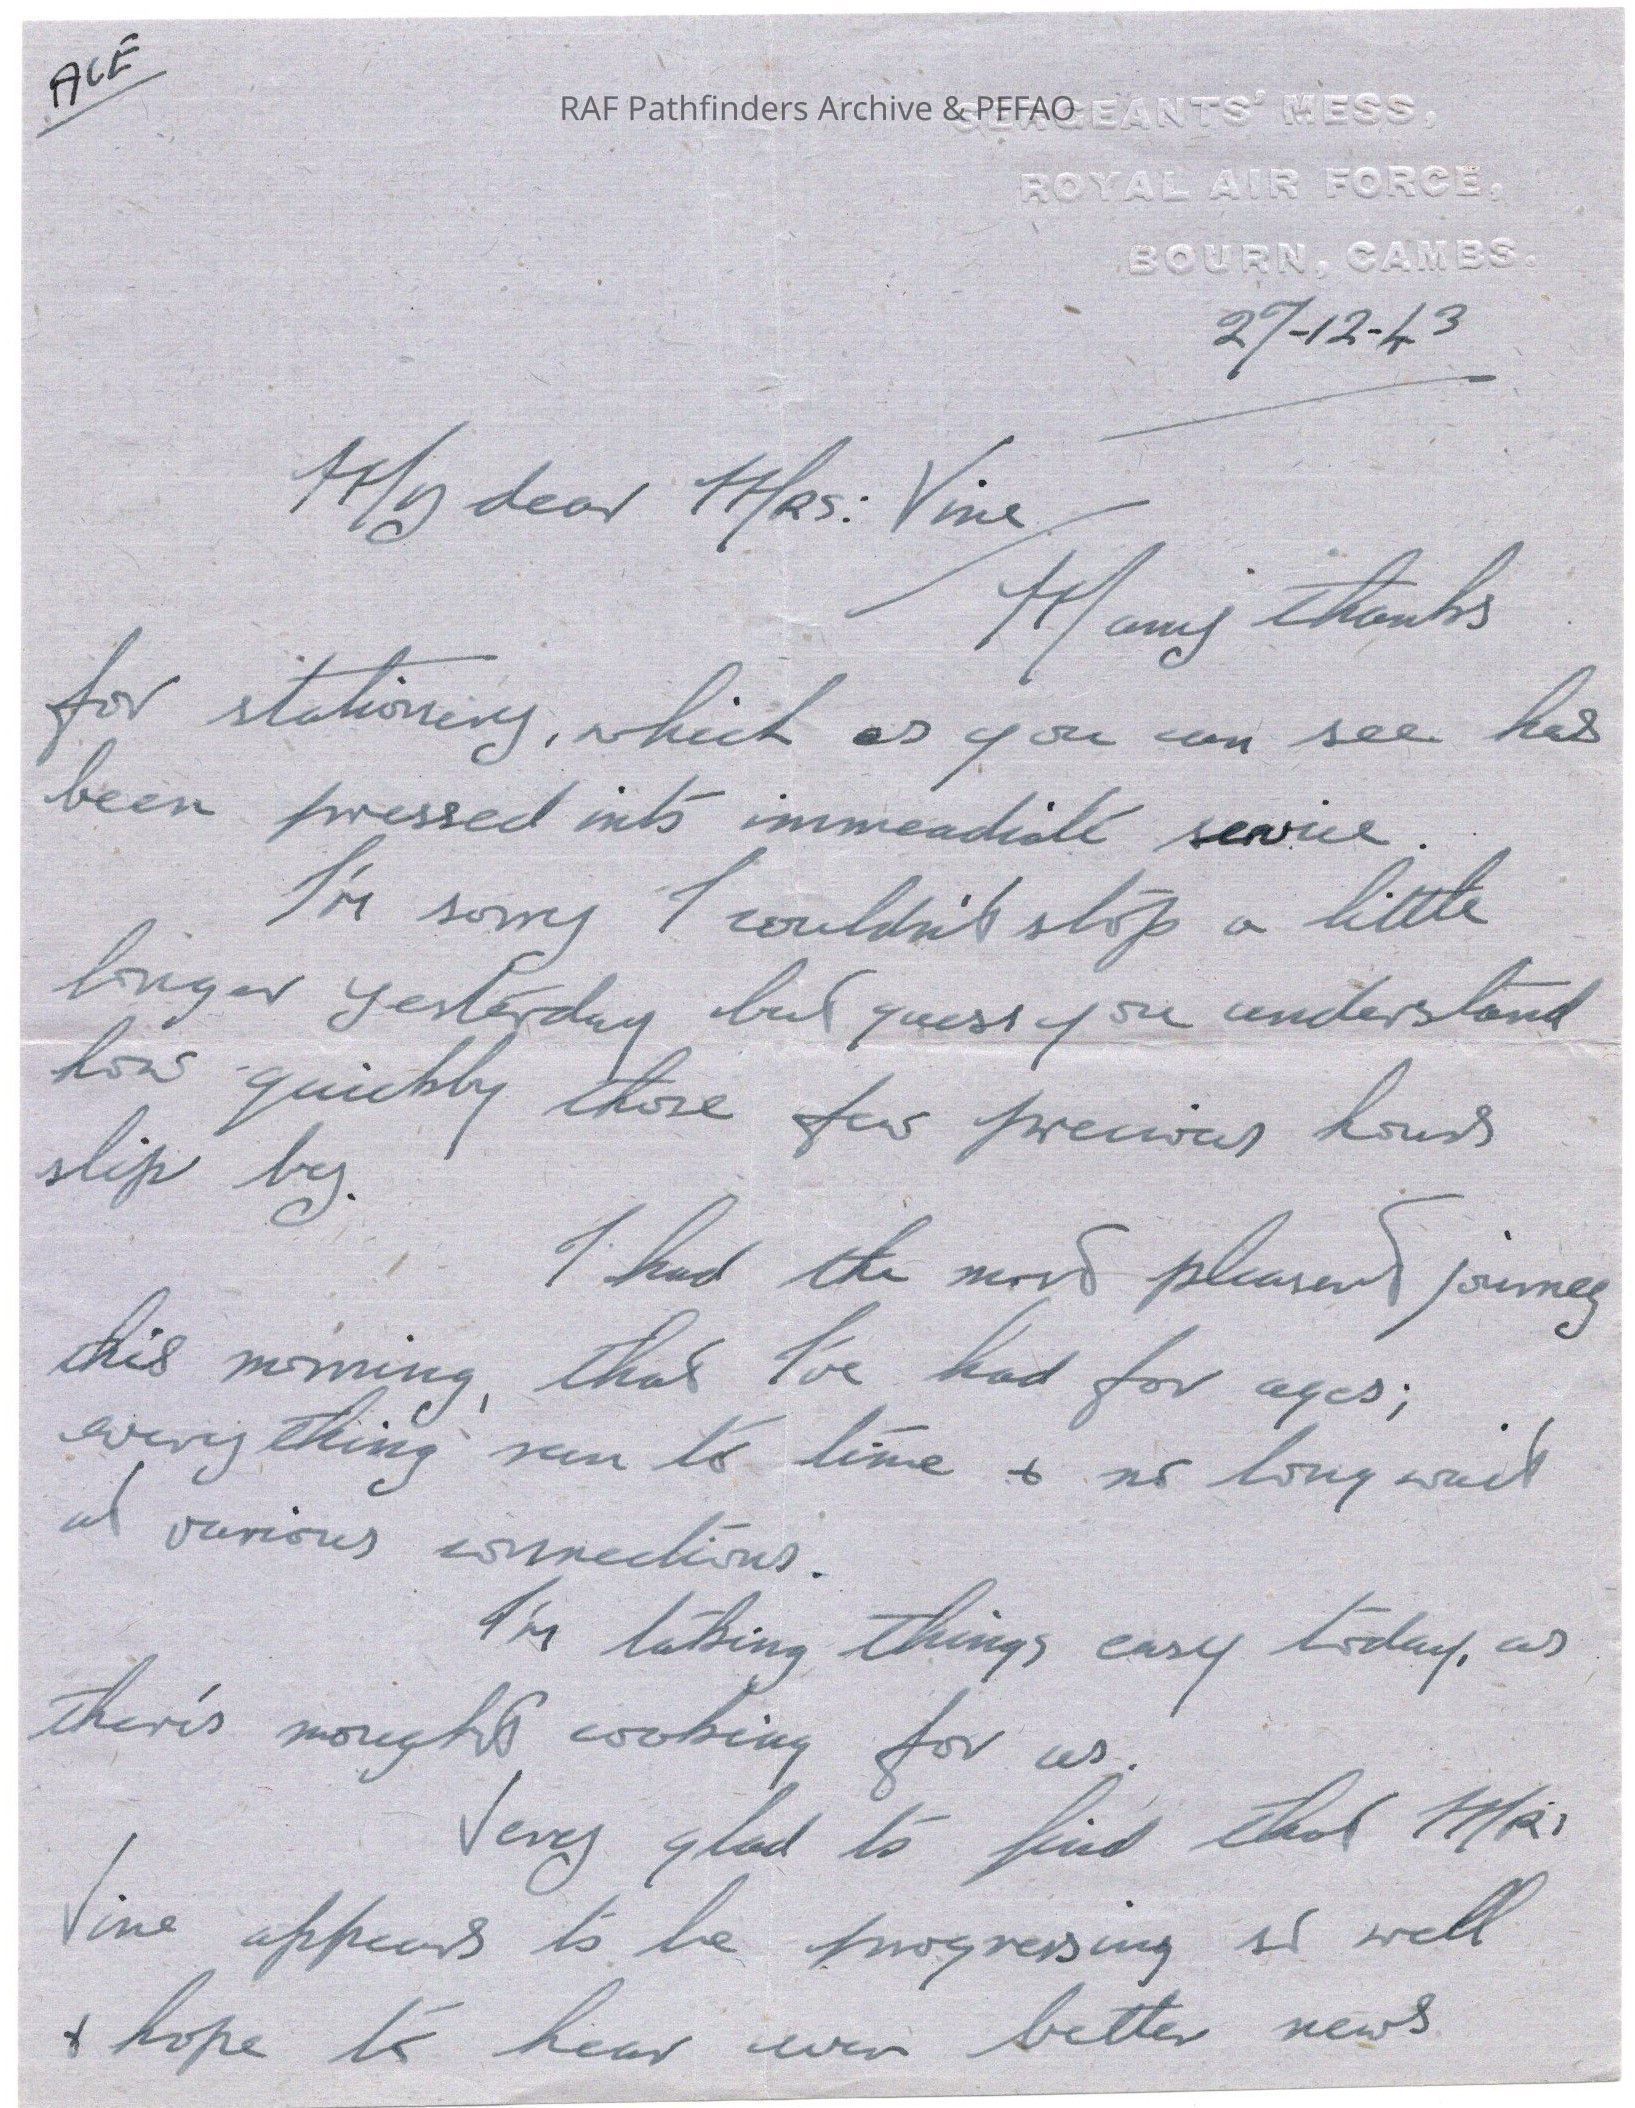 ACE
RAF Pathfinders Archive & PFFAO
SERGEANTS' MESS,
ROYAL AIR FORCE,
BOURN, CAMBS.
27-12-43
My dear Mrs: Vine
Many thanks
for stationery, which as you can see has
been pressed into immeadiate service.
I'm sorry I couldn't stop a little
longer yesterday but guess you understand
how quickly those few precious hours
slip by.
I had the most pleasent journey
this morning, that I've had for ages;
everything run to time & no long wait
at various connections.
I'm taking things easy today, as
there's nought cooking for us.
Very glad to find that Mr.
Vine appears to be progressing so well
& hope to hear even better news